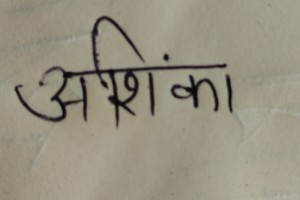 अशिंका